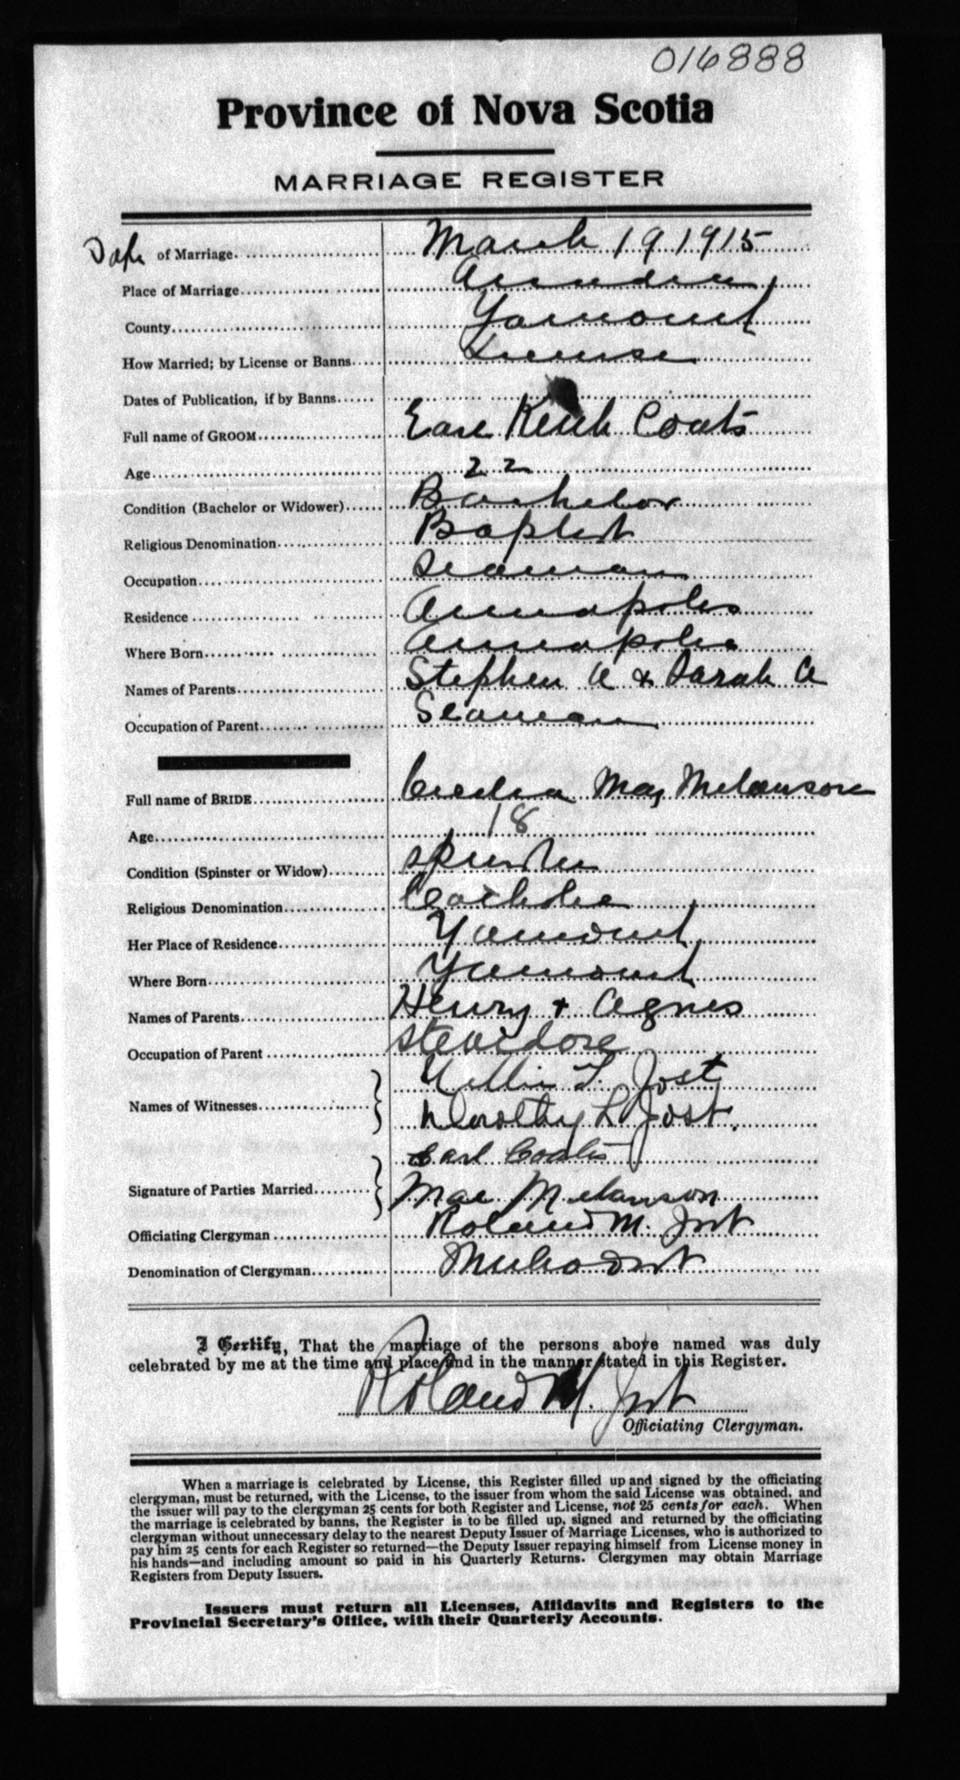 016888
Province of Nova Scotia
MARRIAGE REGISTER
Date of Marriage. March 19 1915
Place of Marriage
County Yarmouth
How Married; by License or Banns License
Dates of Publication, if by Banns
Full name of GROOM Earl Keith Coats
Age 22
Condition (Bachelor or Widower) Bachelor
Religious Denomination Baptist
Occupation Seaman
Residence Annapolis
Where Born Annapolis
Names of Parents Stephen A & Sarah A
Occupation of Parent Seaman
Full name of BRIDE Cecelia May Melanson
Age 18
Condition (Spinster or Widow) Spinster
Religious Denomination Catholic
Her Place of Residence Yarmouth
Where Born Yarmouth
Names of Parents Henry + Agnes
Occupation of Parent Stevidore
Names of Witnesses Nellie T. Jost
Dorothy L. Jost.
Signature of Parties Married Earl Coats
Mae Melanson
Officiating Clergyman Roland M. Jost
Denomination of Clergyman Methodist
I Certify, That the marriage of the persons above named was duly
celebrated by me at the time and place and in the manner stated in this Register.
Roland M. Jost
Officiating Clergyman.
When a marriage is celebrated by License, this Register filled up and signed by the officiating
clergyman, must be returned, with the License, to the issuer from whom the said License was obtained, and
the issuer will pay to the clergyman 25 cents for both Register and License, not 25 cents for each. When
the marriage is celebrated by banns, the Register is to be filled up, signed and returned by the officiating
clergyman without unnecessary delay to the nearest Deputy Issuer of Marriage Licenses, who is authorized to
pay him 25 cents for each Register so returned—the Deputy Issuer repaying himself from License money in
his hands—and including amount so paid in his Quarterly Returns. Clergymen may obtain Marriage
Registers from Deputy Issuers.
Issuers must return all Licenses, Affidavits and Registers to the
Provincial Secretary's Office, with their Quarterly Accounts.